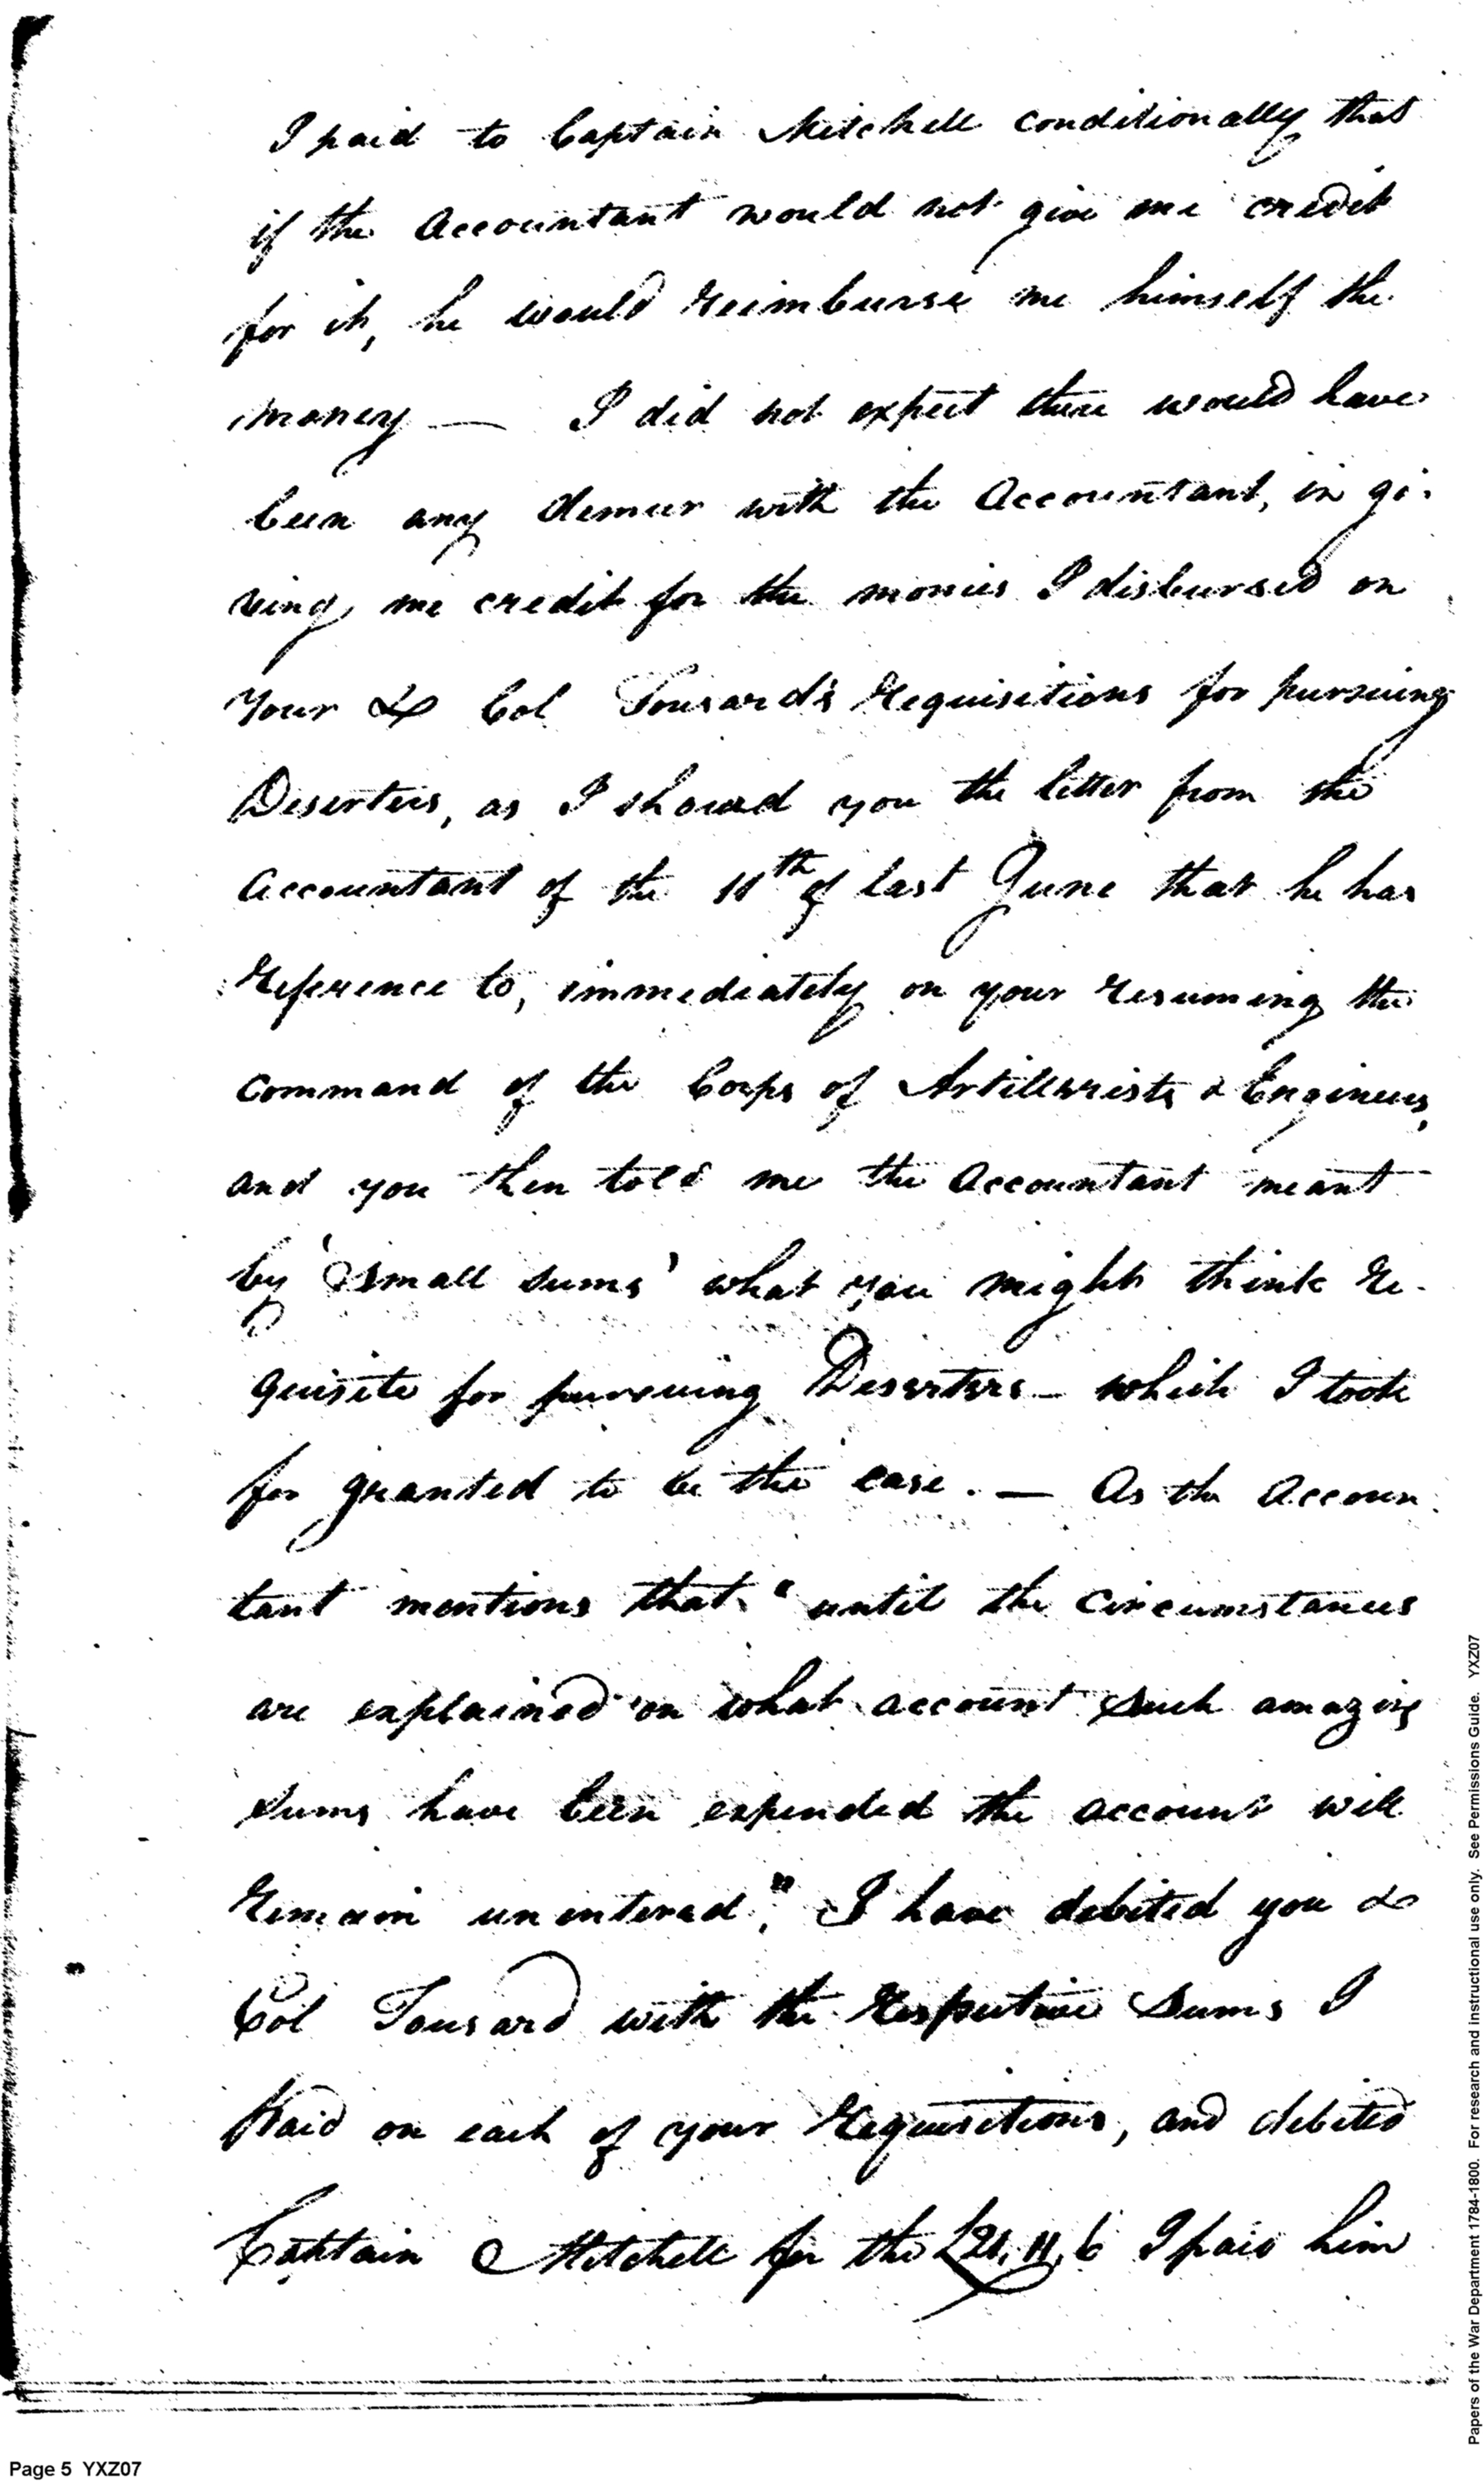 I paid to Captain Mitchell conditionally that
if the Accountant would not give me credit
for it, he would reimburse me himself the
money — I did not expect there would have
been any demur with the Accountant, in gi-
ving me credit for the monies I disbursed on
Your & Col Tousard's requisitions for pursuing
Deserters, as I showed you the letter from the
Accountant of the 11th of last June that he has
reference to, immediately on your resuming the
command of the Corps of Artillerists & Engineers,
and you then told me the Accountant meant
by 'small sums' what you might think re-
quisite for pursuing Deserters — which I took
for granted to be the case. — As the Accoun-
tant mentions that "until the circumstances
are explained on what account such amazing
sums have been expended the account will
remain unentered," I have debited you &
Col Tousard with the respective sums I
Paid on each of your requisitions, and debited
Captain Mitchell for the £21.11.6 I paid him
Page 5 YXZ07
Papers of the War Department 1784-1800. For research and instructional use only. See Permissions Guide. YXZ07